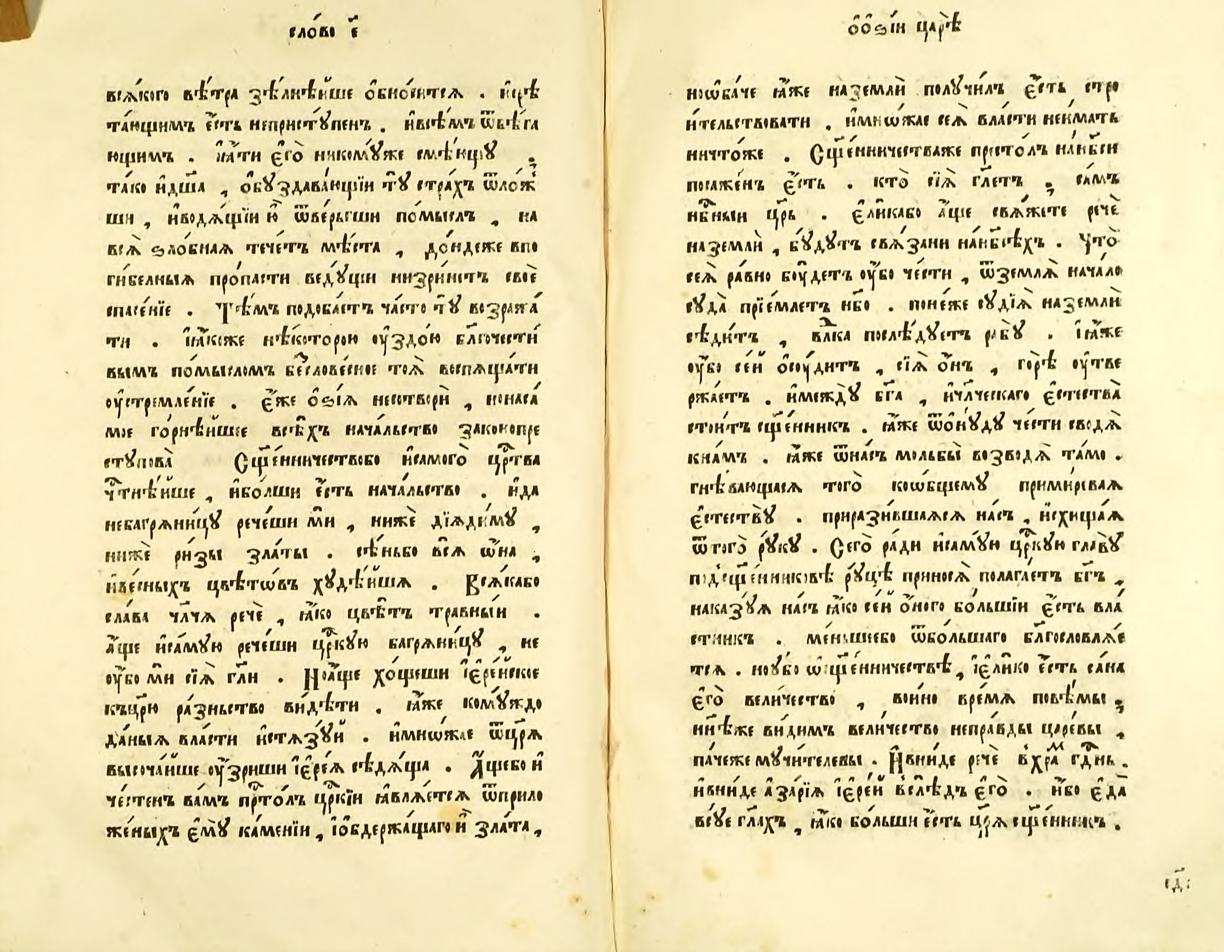 сло́во є҃
всѧ́кого вѣ́тра ѕѣлнѣ́йше ѡ҆бно́ситсѧ . и҆срѣ
та́ющимъ є҆́сть непристꙋ́пенъ . и҆всѣ́мъ ѿвѣ́га
ющимъ . ꙗ҆́ти є҆го̀ никомꙋ́же смѣ́ющꙋ ,
та́ко и҆дш҃а , ѡ҆бꙋздава́ющїи тꙋ̀ стра́хъ ѿло́ж
ши , и҆водѧ́щїи ю҆̀ ѿве́ргши по́мыслъ , на
всѧ̀ ѕло́бнаѧ тече́тъ мѣ́ста , до́ндеже впо
ги́бельныѧ про́пасти ведꙋ́щи низри́нетъ своѐ
спасе́нїе . Тѣ́мъ подоба́етъ ча́сто тꙋ̀ возража́
ти . ꙗ҆́коже нѣ́которою ᲂу҆здо́ю бл҃гочести́
вымъ по́мысломъ бесло́весное тоѧ̀ воспѧща́ти
ᲂу҆стремле́нїе . є҆́же ѻ҆ѕі́ѧ несотворѝ , нонаса́
мое го́рнѣйшее всѣ́хъ нача́льство законопре
стꙋпова̀ Сщ҃е́нничествобо и҆самого̀ црⷭ҇тва
чтⷭ҇нѣ́йше , и҆бо́лши є҆́сть нача́льство . и҆да
небагрѧни́цꙋ рече́ши мѝ , нижѐ дїѧди́мꙋ ,
нижѐ ри́зы зла́ты . сѣ́ньбо всѧ̀ ѡ҆́на ,
и҆ве́сныхъ цвѣ́товъ хꙋдѣ́йшѧ . Всѧ́кабо
сла́ва чл҃чѧ речѐ , ꙗ҆́ко цвѣ́тъ тра́вный .
а҆́ще и҆са́мꙋю рече́ши црⷭ҇кꙋю багрѧни́цꙋ , не
ᲂу҆́бо мѝ сїѧ̀ гл҃и . Ноа҆́ще хо́щеши і҆ере́йское
къцр҃ю ра́зньство ви́дѣти . ꙗ҆́же комꙋ́ждо
да́ныѧ вла́сти и҆стѧзꙋ́й . и҆мно́жае ѿцр҃ѧ
высоча́йше ᲂу҆́зриши і҆ере́ѧ сѣдѧ́ща . А҆́щебо и҆
че́стенъ ва́мъ прⷭ҇то́лъ црⷭ҇кїи ꙗ҆влѧ́етсѧ ѿприло
же́ныхъ є҆мꙋ̀ ка́менїи , і҆ѡбдержа́щаго и҆̀ зла́та ,
ѻ҆ѻ҆ѕі́и царѣ̀
ноѡ҆ба́че ꙗ҆́же наземлѝ полꙋчи́лъ є҆́сть стро
и́тельствовати . и҆мно́жае сеѧ̀ вла́сти неи́мать
ничто́же . Сщ҃е́нничестваже прⷭ҇то́лъ нанб҃си
посаже́нъ є҆́сть . кто̀ сїѧ̀ гл҃етъ , са́мъ
нбⷭ҇ный цр҃ь . є҆ли́кабо а҆́ще свѧ́жете речѐ
наземлѝ , бꙋ́дꙋтъ свѧ́зани нанб҃сѣ́хъ . Что̀
сеѧ̀ ра́вно бꙋ́детъ ᲂу҆́бо че́сти , ѿземлѧ̀ нача́ло
сꙋда̀ прїе́млетъ нб҃о . поне́же сꙋдїѧ̀ наземлѝ
сѣди́тъ , влⷣка послѣ́дꙋетъ рабꙋ̀ . і҆ꙗ҆́же
ᲂу҆́бо се́й ѡ҆сꙋ́дитъ , сїѧ̀ ѻ҆́нъ , горѣ̀ ᲂу҆тве
ржа́етъ . и҆междꙋ̀ бг҃а , и҆чл҃ческаго є҆стества̀
стои́тъ сщ҃е́нникъ . ꙗ҆́же ѿо҆нꙋ́дꙋ че́сти сводѧ̀
кна́мъ . ꙗ҆́же ѿна́съ мольбы̀ возводѧ̀ та́мо .
гнѣ́вающасѧ того̀ коѡ҆́бщемꙋ примирѧ́ѧ
є҆стествꙋ̀ . прирази́вшаѧсѧ на́съ , и҆схища́ѧ
ѿтого̀ рꙋкꙋ̀ . Сего̀ ра́ди и҆са́мꙋю црⷭ҇кꙋю главꙋ̀
подсщ҃е́нниковѣ рꙋцѣ̀ приносѧ̀ полага́етъ бг҃ъ ,
наказꙋ́ѧ на́съ ꙗ҆́ко се́й ѻ҆́ного бо́льшїи є҆́сть вла́
стникъ . ме́ньшеебо ѿбо́льшаго бл҃гословлѧ́е
тсѧ . ноᲂу҆́бо ѡ҆сщ҃е́нничествѣ , і҆є҆ли́ко є҆́сть са́на
є҆го̀ вели́чество , вои́но вре́мѧ повѣ́мы ,
нн҃ѣже ви́димъ вели́чество непра́вды царе́вы ,
па́чеже мꙋчи́телевы . И҆вни́де речѐ вхра́мъ гдⷭ҇нь .
и҆вни́де а҆за́рїѧ і҆ере́й вслѣ́дъ є҆го̀ . и҆́бо є҆да̀
всꙋ́е гл҃ахъ , ꙗ҆́ко бо́льши є҆́сть цр҃ѧ сщ҃е́нникъ .